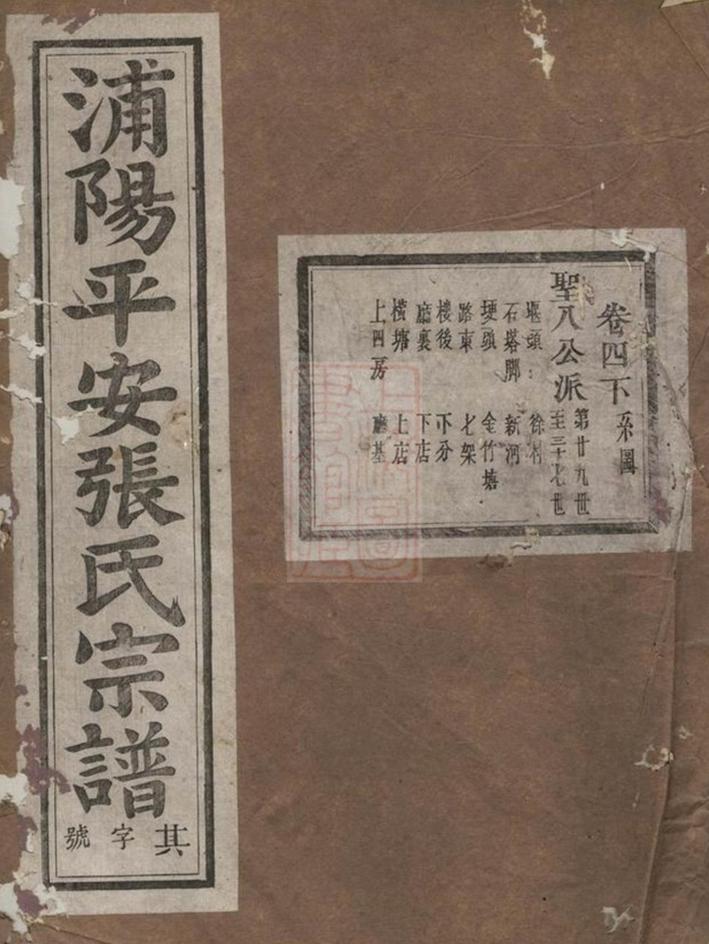 浦陽平安張氏宗譜
其字號
卷四下系圖
聖八公派
第廿九世
至三十七世
堰頭 徐村
石塔脚 新河
埂頭 金竹塘
路東 七架
樓後 下分
廳裏 下店
橫塘 上店
上四房 廳基